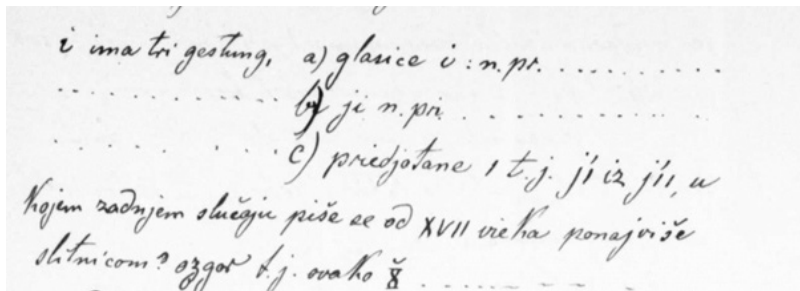 i ima tri geltung, a) glasice i : n. pr. . . . . . . . . .
. . . . . . . . . . . . . b) ji n. pr. . . . . . . . . . . .
. . . . . . . . . c) predjotane i t. j. jí iz jíı, u
kojem zadnjem slučaju piše se od XVII vieka ponajviše
slitnicom? ozgor t. j. ovako . . . . . . . . .